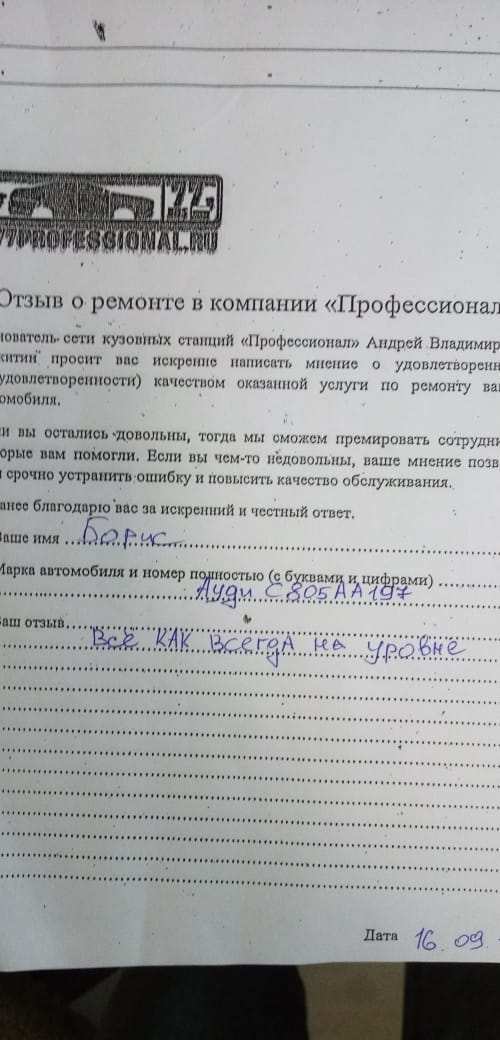 77
77PROFESSIONAL.RU
Отзыв о ремонте в компании «Профессионал
нователь сети кузовных станций «Профессионал» Андрей Владимир
китин просит вас искренне написать мнение о удовлетворенн
удовлетворенности) качеством оказанной услуги по ремонту ва
омобиля.
и вы остались довольны, тогда мы сможем премировать сотрудни
орые вам помогли. Если вы чем-то недовольны, ваше мнение позв
и срочно устранить ошибку и повысить качество обслуживания.
анее благодарю вас за искренний и честный ответ.
Ваше имя Борис
Марка автомобиля и номер полностью (с буквами и цифрами)
Ауди С805АА197
Ваш отзыв
Всё КАК ВсегдА на уровне
Дата 16.09.